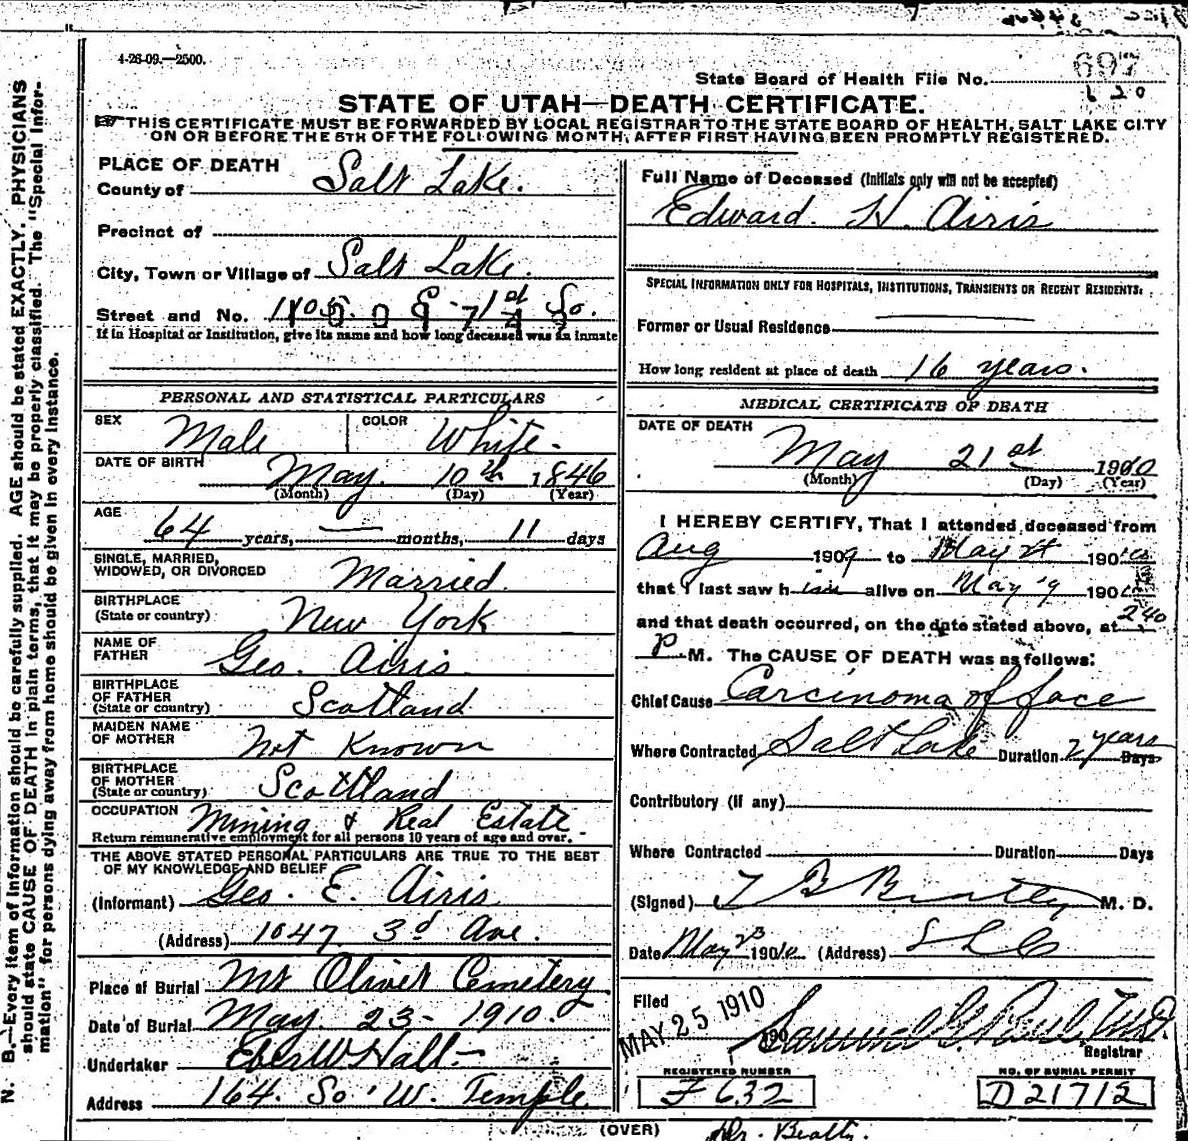 4-26-09.—2500.
State Board of Health File No. 697
620
STATE OF UTAH—DEATH CERTIFICATE.
THIS CERTIFICATE MUST BE FORWARDED BY LOCAL REGISTRAR TO THE STATE BOARD OF HEALTH, SALT LAKE CITY
ON OR BEFORE THE 5TH OF THE FOLLOWING MONTH, AFTER FIRST HAVING BEEN PROMPTLY REGISTERED.
N. B.—Every item of information should be carefully supplied. AGE should be stated EXACTLY. PHYSICIANS
should state CAUSE OF DEATH in plain terms, that it may be properly classified. The "Special Infor-
mation" for persons dying away from home should be given in every instance.
PLACE OF DEATH
County of Salt Lake.
Precinct of
City, Town or Village of Salt Lake.
Street and No. 1st So.
If in Hospital or Institution, give its name and how long deceased was an inmate
PERSONAL AND STATISTICAL PARTICULARS
SEX Male COLOR White
DATE OF BIRTH May. 10th 1846
(Month) (Day) (Year)
AGE
64 years, — months, 11 days
SINGLE, MARRIED,
WIDOWED, OR DIVORCED Married.
BIRTHPLACE
(State or country) New York
NAME OF
FATHER Geo. Airis
BIRTHPLACE
OF FATHER
(State or country) Scotland
MAIDEN NAME
OF MOTHER Not Known
BIRTHPLACE
OF MOTHER
(State or country) Scottland
OCCUPATION Mining & Real Estate.
Return remunerative employment for all persons 10 years of age and over.
THE ABOVE STATED PERSONAL PARTICULARS ARE TRUE TO THE BEST
OF MY KNOWLEDGE AND BELIEF
(Informant) Geo. E. Airis
(Address) 1047 3d Ave.
Place of Burial Mt Olivet Cemetery
Date of Burial May. 23- 1910.
Undertaker Eber W Hall
Address 164. So. W. Temple
Full Name of Deceased (Initials only will not be accepted)
Edward. H. Airis
SPECIAL INFORMATION ONLY FOR HOSPITALS, INSTITUTIONS, TRANSIENTS OR RECENT RESIDENTS.
Former or Usual Residence
How long resident at place of death 16 years.
MEDICAL CERTIFICATE OF DEATH
DATE OF DEATH
May 21st 1910
(Month) (Day) (Year)
I HEREBY CERTIFY, That I attended deceased from
Aug 1909 to May 21 1910
that I last saw him alive on May 19 1910
and that death occurred, on the date stated above, at 2 40
P. M. The CAUSE OF DEATH was as follows:
Chief Cause Carcinoma of face
Where Contracted Salt Lake Duration 2 years Days
Contributory (if any)
Where Contracted Duration Days
(Signed) T B Beatty M. D.
Date May 23 1910 (Address) S L C
Filed
MAY 25 1910 190
Samuel G. Paul, M.D.
Registrar
REGISTERED NUMBER
F 632
NO. OF BURIAL PERMIT
D 21712
(OVER)
Dr. Beatty.